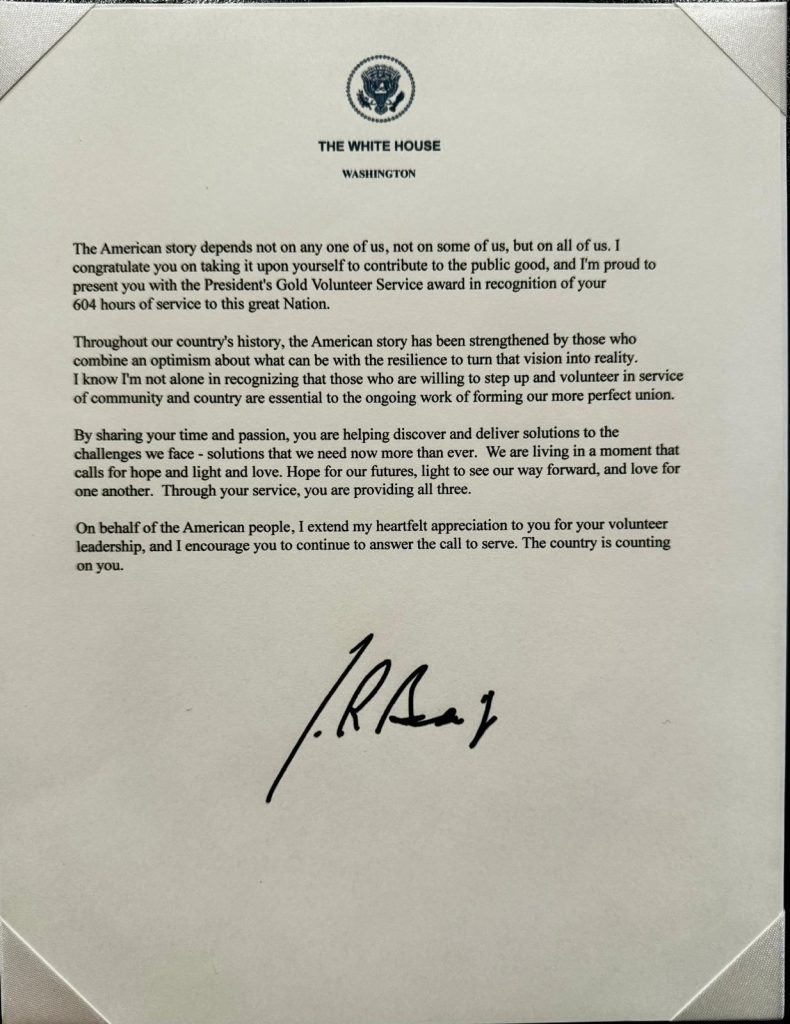 THE WHITE HOUSE
WASHINGTON
The American story depends not on any one of us, not on some of us, but on all of us. I
congratulate you on taking it upon yourself to contribute to the public good, and I'm proud to
present you with the President's Gold Volunteer Service award in recognition of your
604 hours of service to this great Nation.
Throughout our country's history, the American story has been strengthened by those who
combine an optimism about what can be with the resilience to turn that vision into reality.
I know I'm not alone in recognizing that those who are willing to step up and volunteer in service
of community and country are essential to the ongoing work of forming our more perfect union.
By sharing your time and passion, you are helping discover and deliver solutions to the
challenges we face - solutions that we need now more than ever.  We are living in a moment that
calls for hope and light and love. Hope for our futures, light to see our way forward, and love for
one another.  Through your service, you are providing all three.
On behalf of the American people, I extend my heartfelt appreciation to you for your volunteer
leadership, and I encourage you to continue to answer the call to serve. The country is counting
on you.